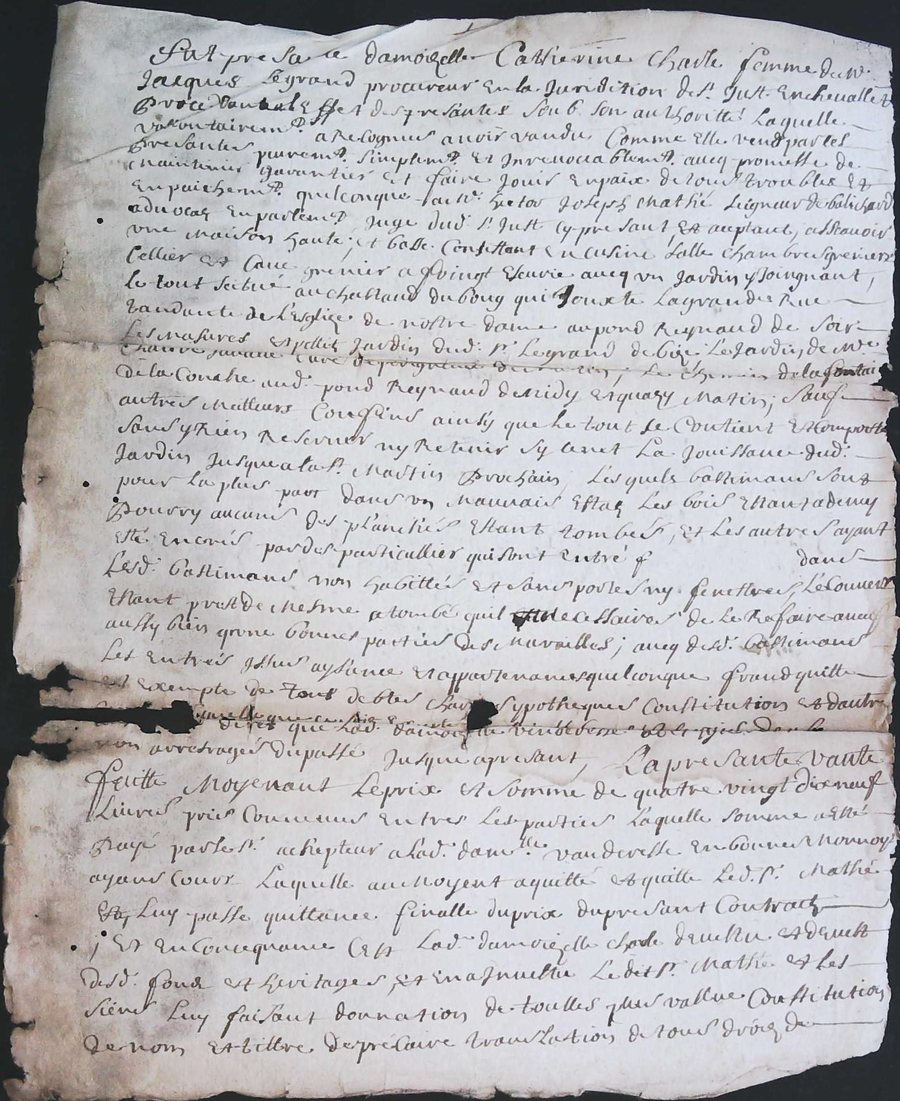 Fut presante damoizelle Catherine Charle femme de Mr.
Jacques Legrand procureur En la Juridition de St. Just En chevallet
procedant de l'Effet des presantes soub son authoritté Laquelle
vollontairemt. a Recognus avoir vandu Comme Elle vend par les
presantes puremt. simplemt. Et Inrevocablemt. avecq promesse de
maintenir garantir Et faire Jouir En paix de tous troubles Et
Enpaichemt. quelconque a Mr. hector Joseph Mathé seigneur de balichard
advocaz En parlemt. Juge dud. St. Just Cy presant, Et aceptant, assavoir
une Maison haute, et basse Consistant En cuisine salle chambres greniers
Cellier Et Cave grenier a foing Escurie avecq un Jardin y Joignant,
le tout scitué au chasteaud du bouq qui Jouxte La grande Rue
tandante de L'Eglize de nostre dame au pond Reynaud de soir
Les Masures Et pettit Jardin dud. Sr. Legrand de bize Le Jardin de Mre.
Curé de Le Chemin de la fontaine
de la Conche aud. pond Reynaud de Midy Et quazy Matin; sauf
autres Meilleurs Confins ainsy que Le tout se Contient Et Comporte
sans y Rien Reserver ny Retenir sy ce n'est La Jouissance dud.
Jardin Jusque a la St. Martin prochain, Lesquels bastimans sont
pour La plus part dans un Mauvais Estat Les bois Estant a demy
pourry aucuns des planchés Estant tombés, Et Les autres ayant
Esté Encrés par des particullier qui sont Entré f dans
Lesd. bastimans non habittés Et sans portes ny fenestres, Le Couvert
Estant prest de Mesme a tombé qu'il Est necessaires de Le Refaire avecq
aussy bien qu'une bonnes parties des Murailles; avecq desd. bastimans
Les Entrés Issus aysance Et appartenances quelconque franc quitte
Et Exempte de tous debtes charges ypotheques Constitution Et d'autre
que Lad. damoizelle
non arrerages du passé Jusque a presant, La presante vante
faitte Moyenant Le prix Et somme de quatre vingt dix neuf
Livres pris Convenus Entres Les parties Laquelle somme a Etté
payé par le Sr. achepteur a Lad. damlle. vanderesse En bonnes Monnoye
ayant Cours Laquelle au Moyent aquitté Et quitte Led. Sr. Mathé
Et Luy passe quittance finalle du prix du presant Contract
; Et En Concequance C'est Lad. damoizelle Charle devestu Et devest
desd. fonds Et héritages, Et En a Investu Le dit Sr. Mathé Et Les
siens Luy faisant donnation de touttes plus vallue Constitution
de nom Et tittre de precaire translation de tous droicz de